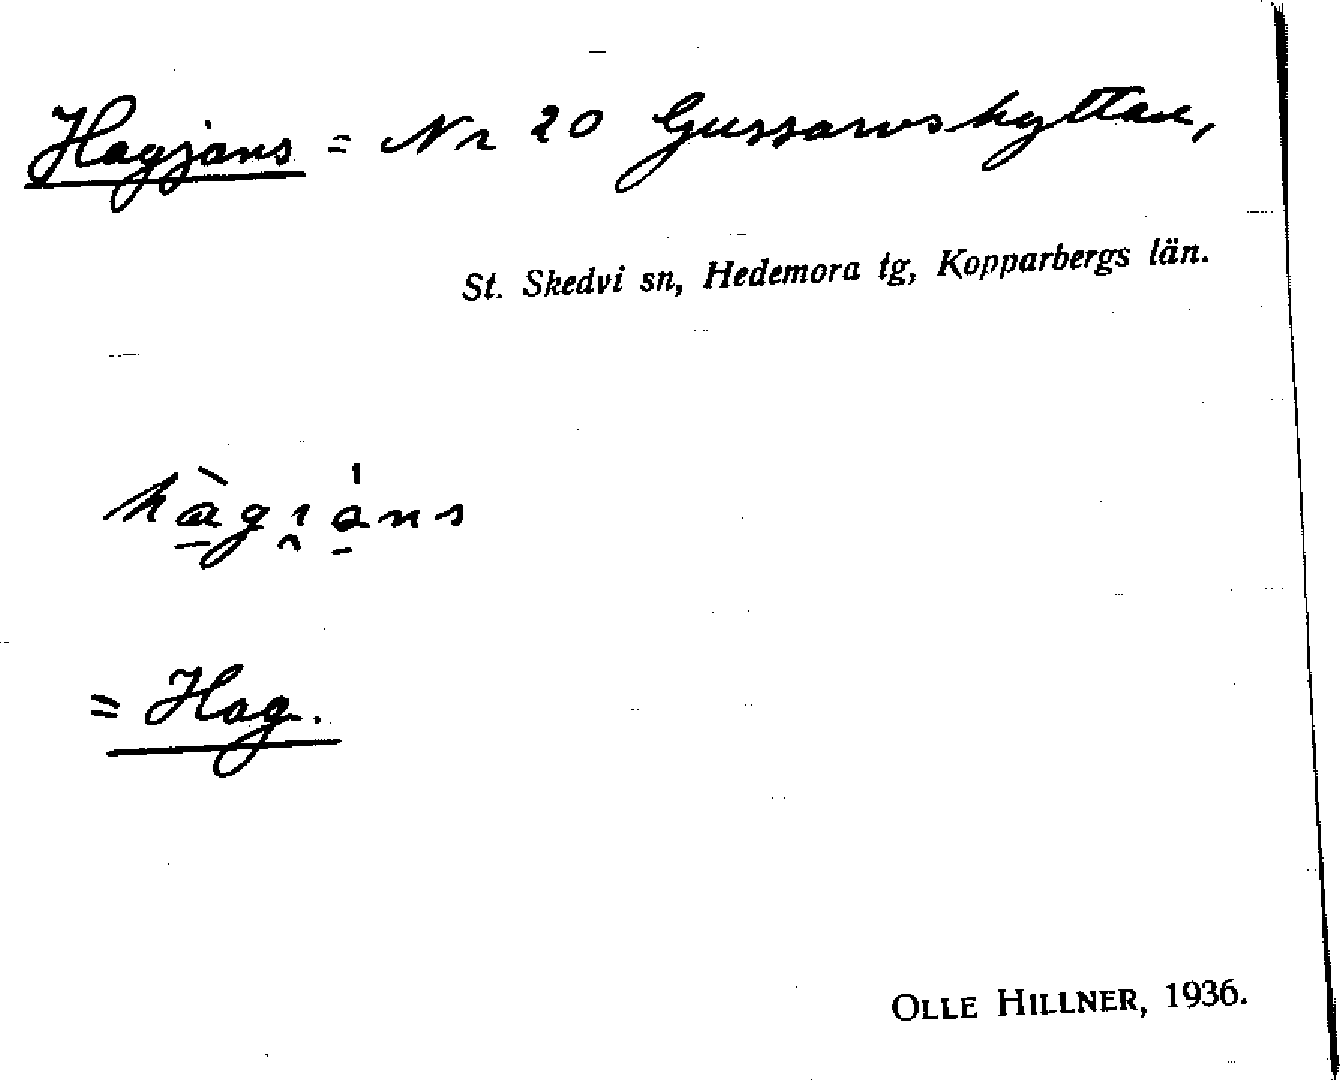 Hagjans = Nr 20 Gussarvshyttan,
St. Skedvi sn, Hedemora tg, Kopparbergs län.
hàgi̯áns
= Hag.
OLLE HILLNER, 1936.